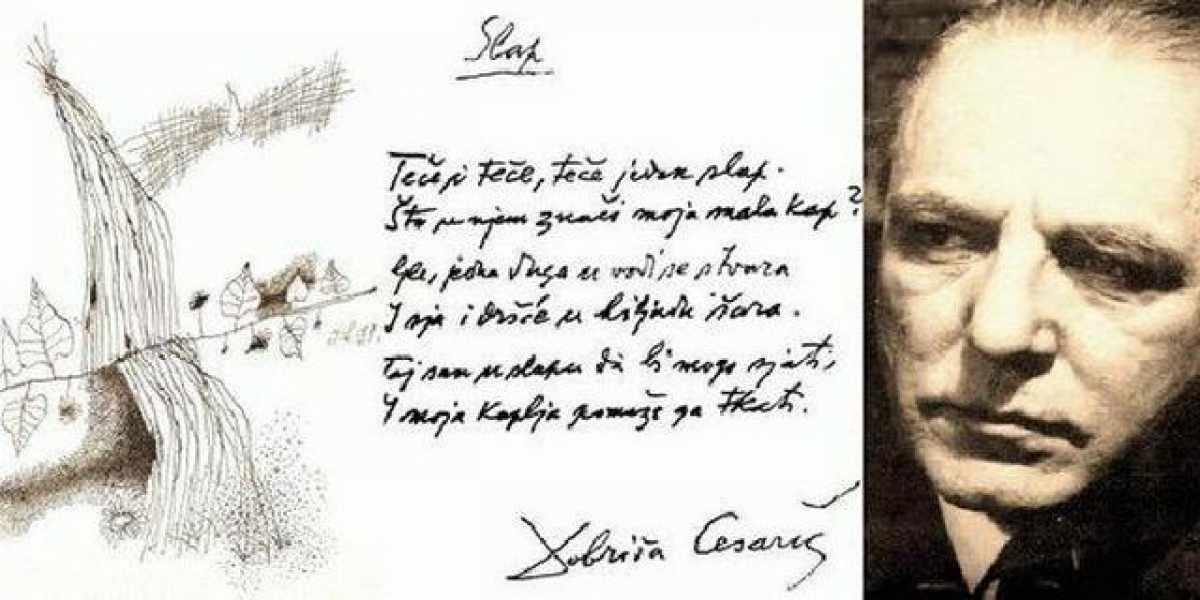 Slap
Teče i teče, teče jedan slap.
Što u njem znači moja mala kap?
Gle, jedna duga u vodi se stvara
I sja i dršće u hiljadu šara.
Taj san u slapu da bi mogo sjati,
I moja kaplja pomaže ga tkati.
Dobriša Cesarić